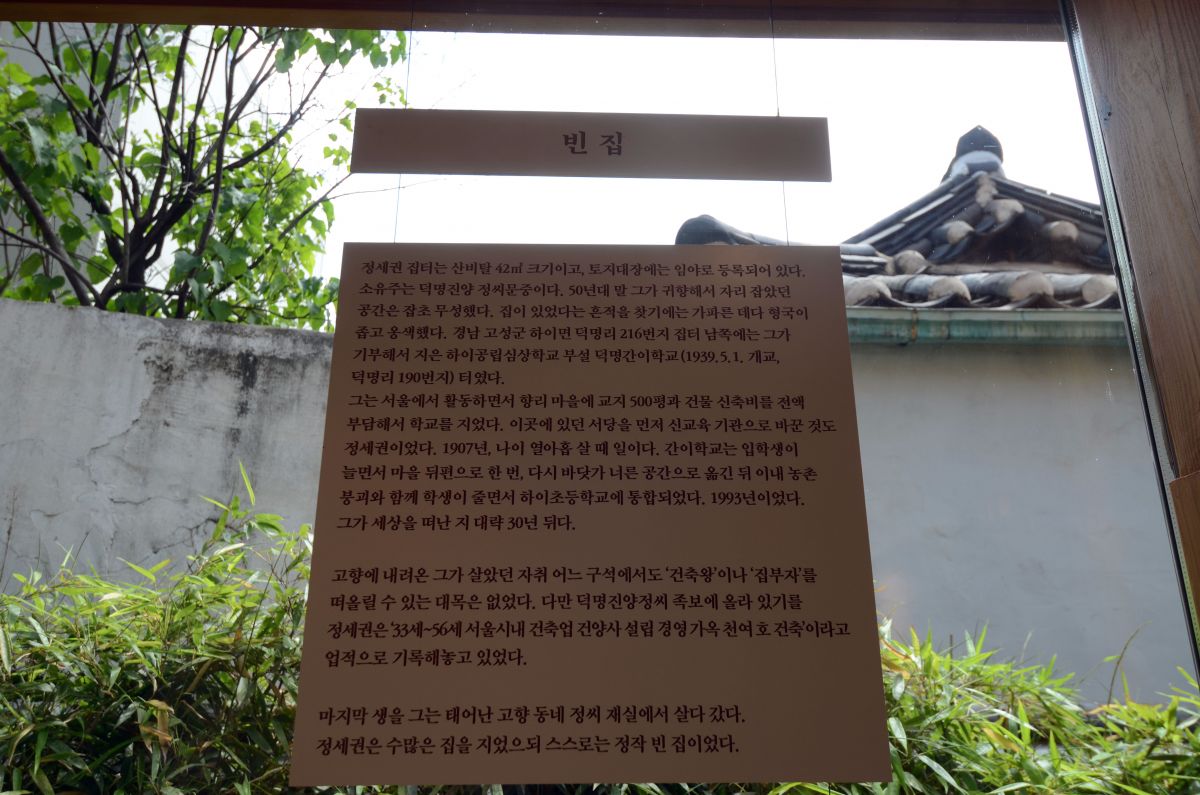 빈 집
정세권 집터는 산비탈 42㎡ 크기이고, 토지대장에는 임야로 등록되어 있다.
소유주는 덕명진양 정씨문중이다. 50년대 말 그가 귀향해서 자리 잡았던
공간은 잡초 무성했다. 집이 있었다는 흔적을 찾기에는 가파른 데다 형국이
좁고 옹색했다. 경남 고성군 하이면 덕명리 216번지 집터 남쪽에는 그가
기부해서 지은 하이공립심상학교 부설 덕명간이학교(1939. 5. 1. 개교,
덕명리 190번지) 터였다.
그는 서울에서 활동하면서 향리 마을에 교지 500평과 건물 신축비를 전액
부담해서 학교를 지었다. 이곳에 있던 서당을 먼저 신교육 기관으로 바꾼 것도
정세권이었다. 1907년, 나이 열아홉 살 때 일이다. 간이학교는 입학생이
늘면서 마을 뒤편으로 한 번, 다시 바닷가 너른 공간으로 옮긴 뒤 이내 농촌
붕괴와 함께 학생이 줄면서 하이초등학교에 통합되었다. 1993년이었다.
그가 세상을 떠난 지 대략 30년 뒤다.
고향에 내려온 그가 살았던 자취 어느 구석에서도 ‘건축왕’이나 ‘집부자’를
떠올릴 수 있는 대목은 없었다. 다만 덕명진양정씨 족보에 올라 있기를
정세권은 ‘33세~56세 서울시내 건축업 건양사 설립 경영 가옥 천여 호 건축’이라고
업적으로 기록해놓고 있었다.
마지막 생을 그는 태어난 고향 동네 정씨 재실에서 살다 갔다.
정세권은 수많은 집을 지었으되 스스로는 정작 빈 집이었다.